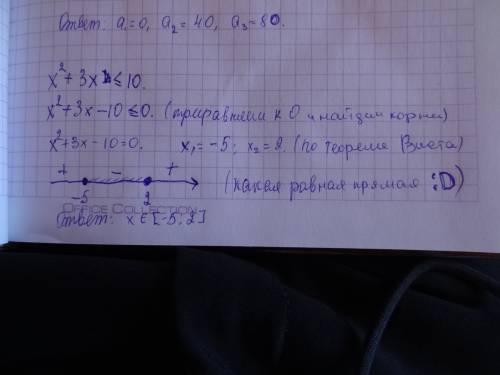 Ответ: a₁=0, a₂=40, a₃=80.
x²+3x ≤10.
x²+3x-10≤0. (приравняем к 0 и найдем корни)
x²+3x-10=0. x₁=-5; x₂=2. (по теореме Виета)
+ - +
-5 2 (какая равная прямая :D)
OFFICE COLLECTION
Ответ: x∈[-5; 2]